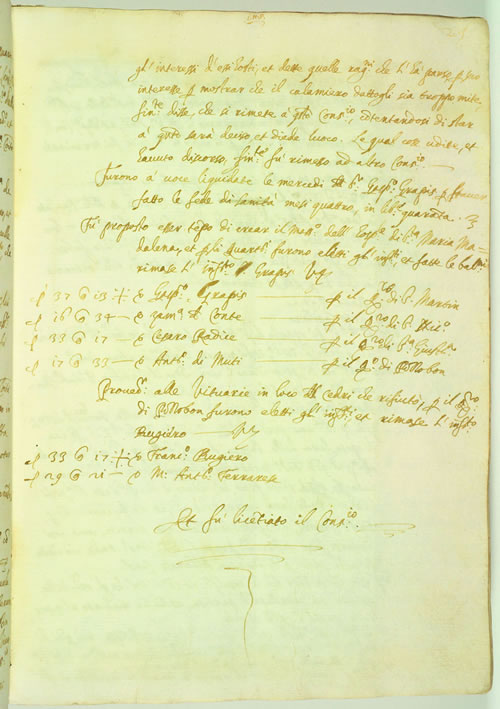 gl' interessi d' essi hosti, et dette quelle rag.ni che l' hà parse p suo
interesse p mostrar che il calamiero dattogli sia troppo mite,
fin.te disse, che si rimete à q.to Cons.o, cōtentandosi di star
à q.nto sarà deciso et diede luoco. Le qual cose udite, et
hauuto discorso, fin.te fù rimesso ad altro Cons.o
Furono à uoce liquidate le mercedi Gasp.o Grapis p hauer
fatto la fede di sanità mesi quattro, in lib. quaranta.
Fù proposto esser tēpo di crear il Mass.o dell' Eccl.a di S.ta Maria Ma=
dalena, et p li quart.i furono eletti gl' inf.ti, et fatte le ball.ni
rimase l' inf.to Grapis
p 37 G 13 Gasp.o Grapis p il q.ro di S. Martin
p 16 G 34 Conte p il q.ro di S. Nic.o
p 33 G 17 Cesaro Radice p il q.ro di S.
p 17 G 33 Ant.o di Muti p il q.o di Pollobon
Proued. alle Vituarie in loco cedri che rifiutò, p il q.ro
di Pollobon furono eletti gl' inf.ti et rimase l' inf.to
Rugiero
p 33 G 17 Franc.o Rugiero
p 29 G 21 M. Ant.o Ferrarese
Et fù licētiato il Cons.o